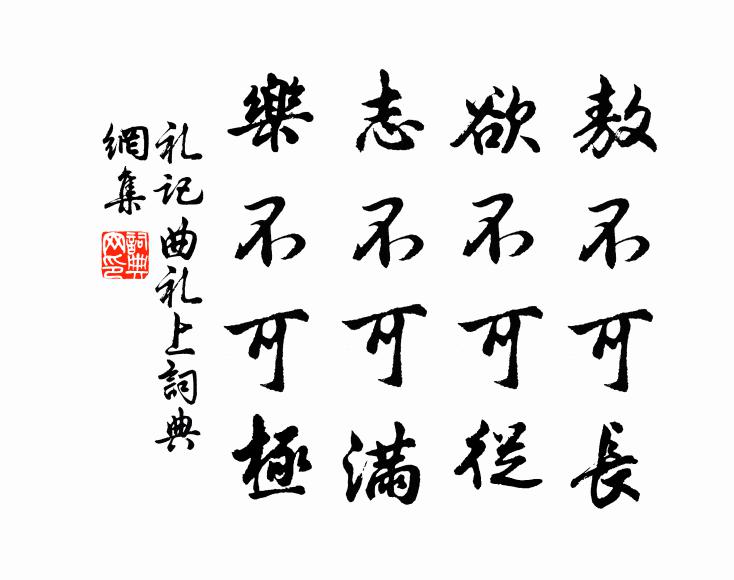 敖不可長
欲不可從
志不可滿
樂不可極
礼记曲礼上詞典
網集
詞典
网印